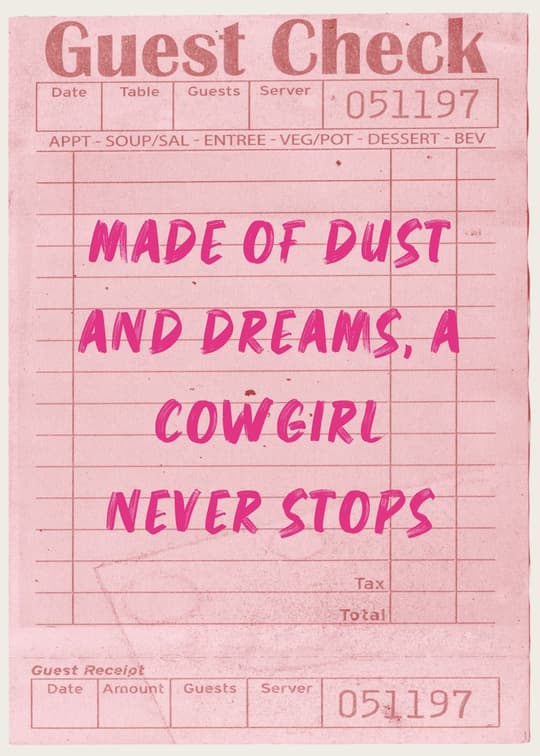 Guest Check
Date Table Guests Server 051197
APPT - SOUP/SAL - ENTREE - VEG/POT - DESSERT - BEV
MADE OF DUST
AND DREAMS, A
COWGIRL
NEVER STOPS
Tax
Total
Guest Receipt
Date Amount Guests Server 051197